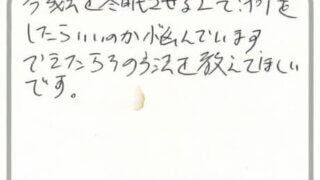 冬眠させる上で何を
したらいいのか悩んでいます
できたらその方法を教えてほしい
です。